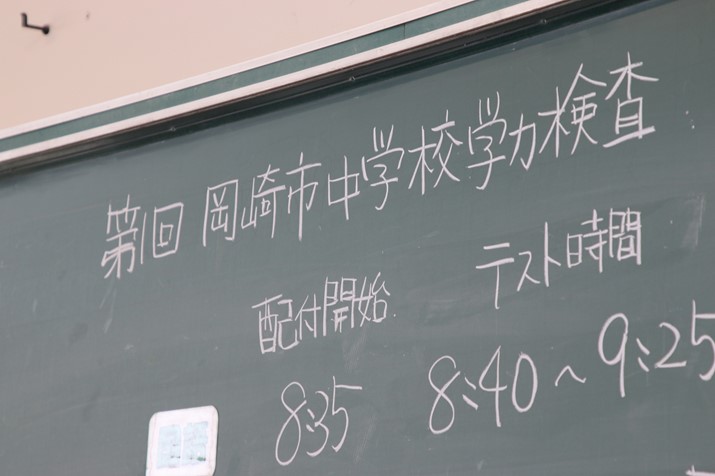 第1回 岡崎市中学校学力検査
配付開始 テスト時間
8:35 8:40〜9:25